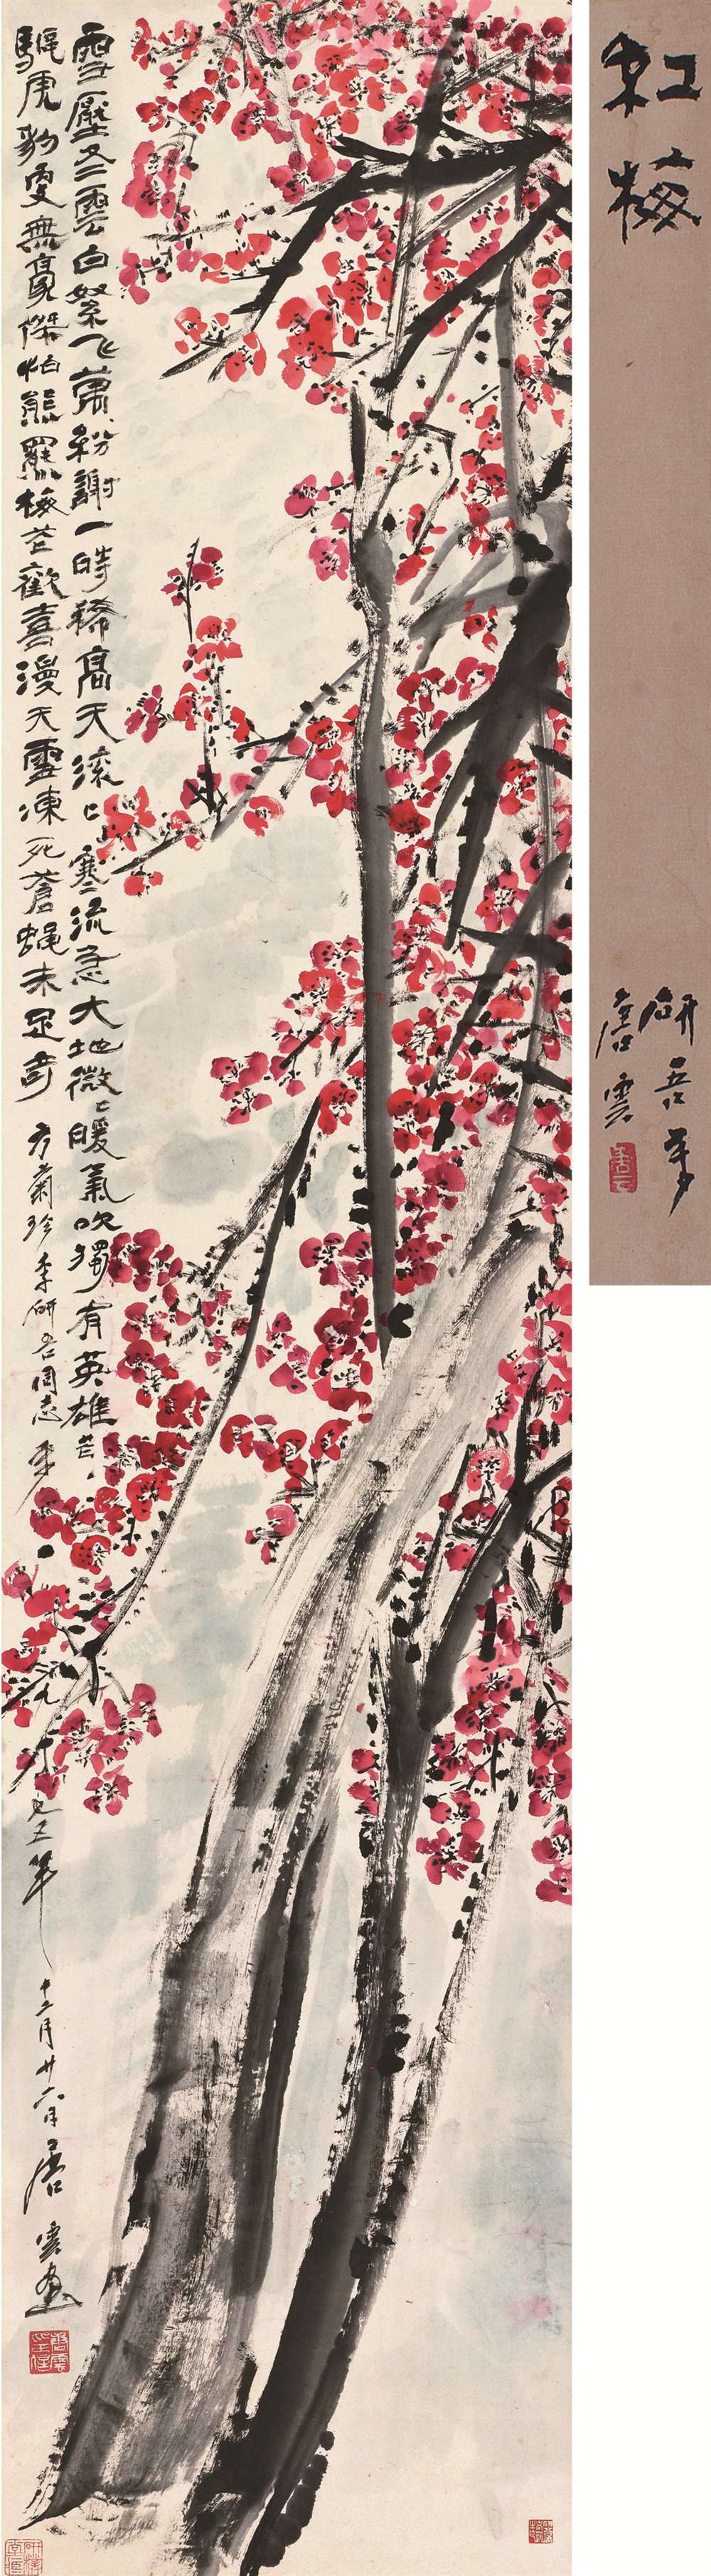 雪壓冬雲白絮飞萬紛謝一時稀高天滚〻寒流急大地微〻暖氣吹獨有英雄花、
驅虎豹更無豪傑怕熊羆梅花歡喜漫天雪凍死蒼蝇未足奇
方菊珍李研吾同志
七五年十二月廿六日唐雲畫
紅梅
研吾
唐雲
唐云